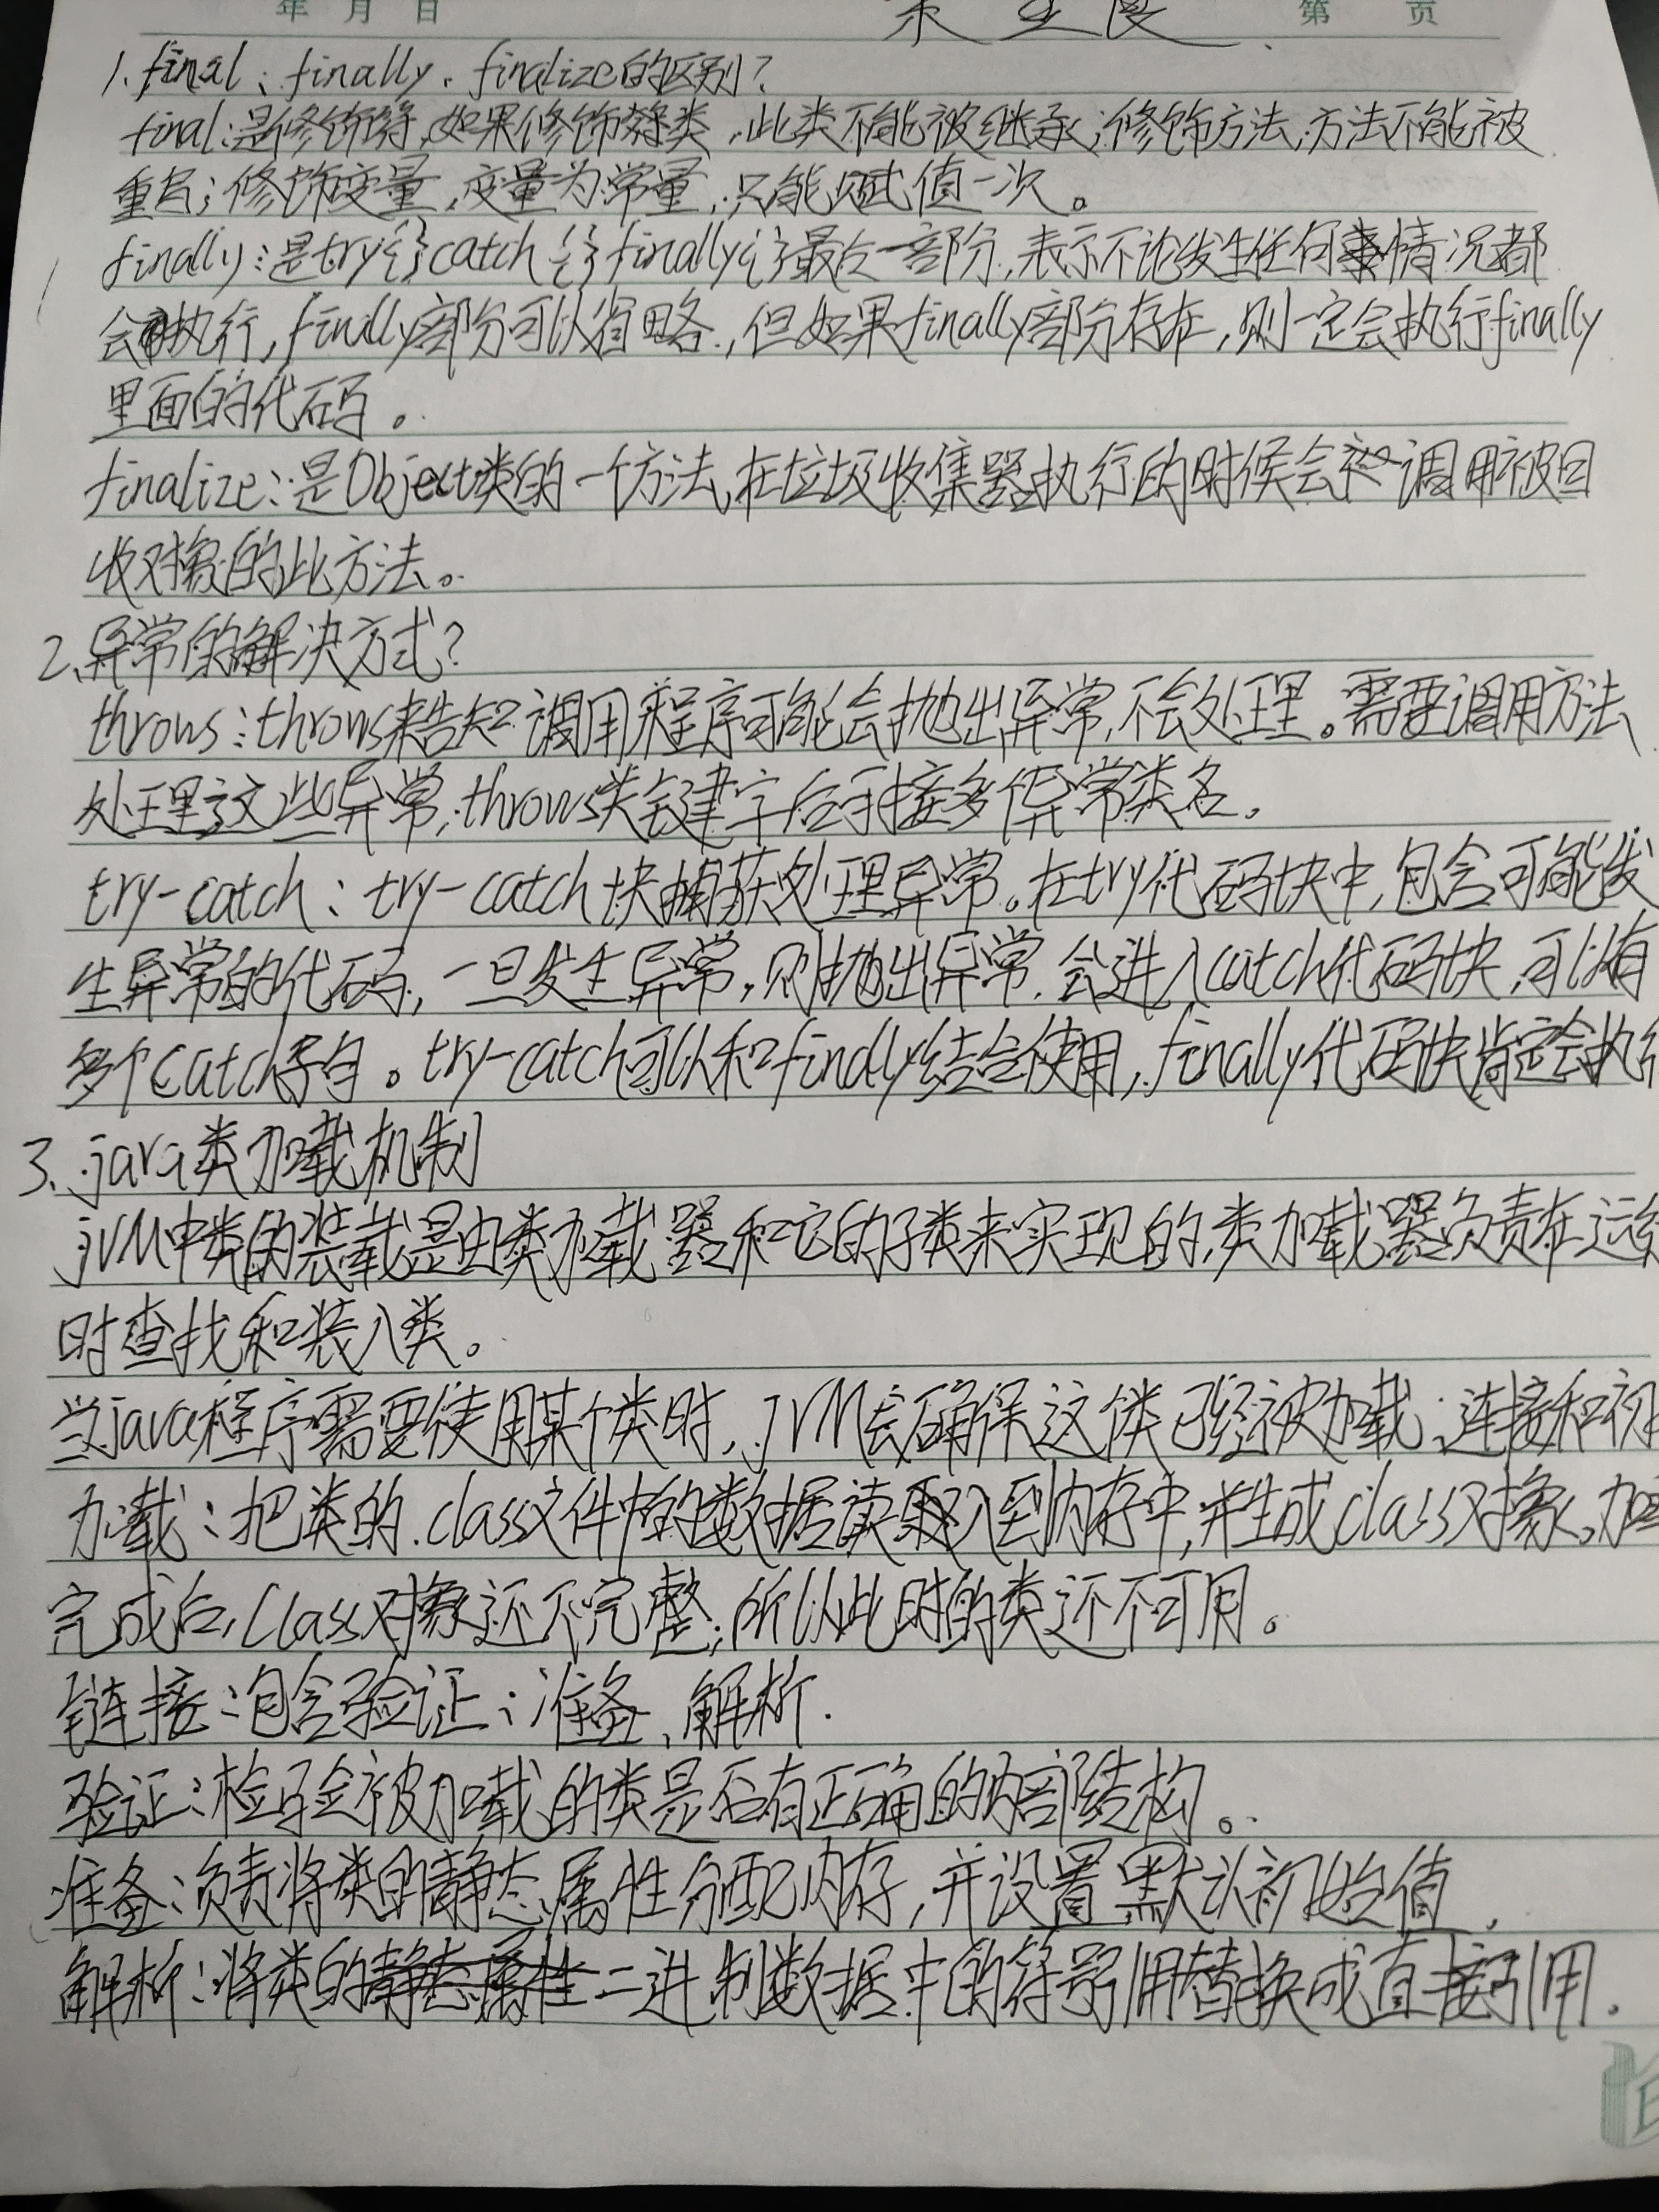 年 月 日 第 页
1.final、finally、finalize的区别?
final:是修饰符,如果修饰类,此类不能被继承;修饰方法,方法不能被
重写;修饰变量,变量为常量,只能赋值一次。
finally:是try{}catch{}finally{}最后一部分,表示不论发生任何情况都
会执行,finally部分可以省略,但如果finally部分存在,则一定会执行finally
里面的代码。
finalize:是Object类的一个方法,在垃圾收集器执行的时候会调用被回
收对象的此方法。
2、异常的解决方式?
throws:throws来告知调用程序可能会抛出异常,不会处理。需要调用方法
处理这些异常,throws关键字后可接多个异常类名。
try-catch:try-catch块捕获处理异常。在try代码块中,包含可能发
生异常的代码,一旦发生异常,则抛出异常,会进入catch代码块,可以有
多个catch子句。try-catch可以和finally结合使用,finally代码块肯定会执行
3、java类加载机制
jVM中类的装载是由类加载器和它的子类来实现的,类加载器负责在运行
时查找和装入类。
当java程序需要使用某个类时,JVM会确保这个类已经被加载、连接和初
加载:把类的.class文件中的数据读入到内存中,并生成class对象。加载
完成后,Class对象还不完整,所以此时的类还不可用。
链接:包含验证、准备、解析.
验证:检验被加载的类是否有正确的内部结构。
准备:负责将类的静态属性分配内存,并设置默认初始值,
解析:将类的二进制数据中的符号引用替换成直接引用.